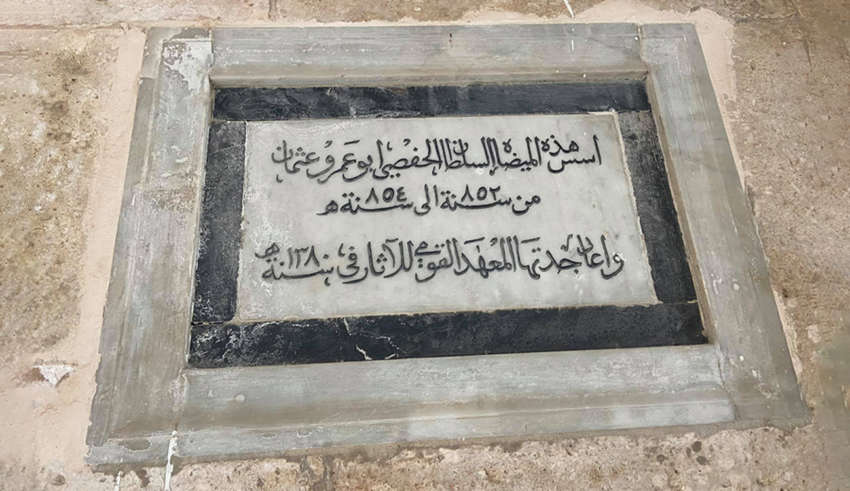 اسس هذه الميضاة السلطان الحفصي ابو عمرو عثمان
من سنة ٨٥٢ الى سنة ٨٥٤ ه
واعاد جدتها المعهد القومي للآثار في سنة ١٣٨٠ ه